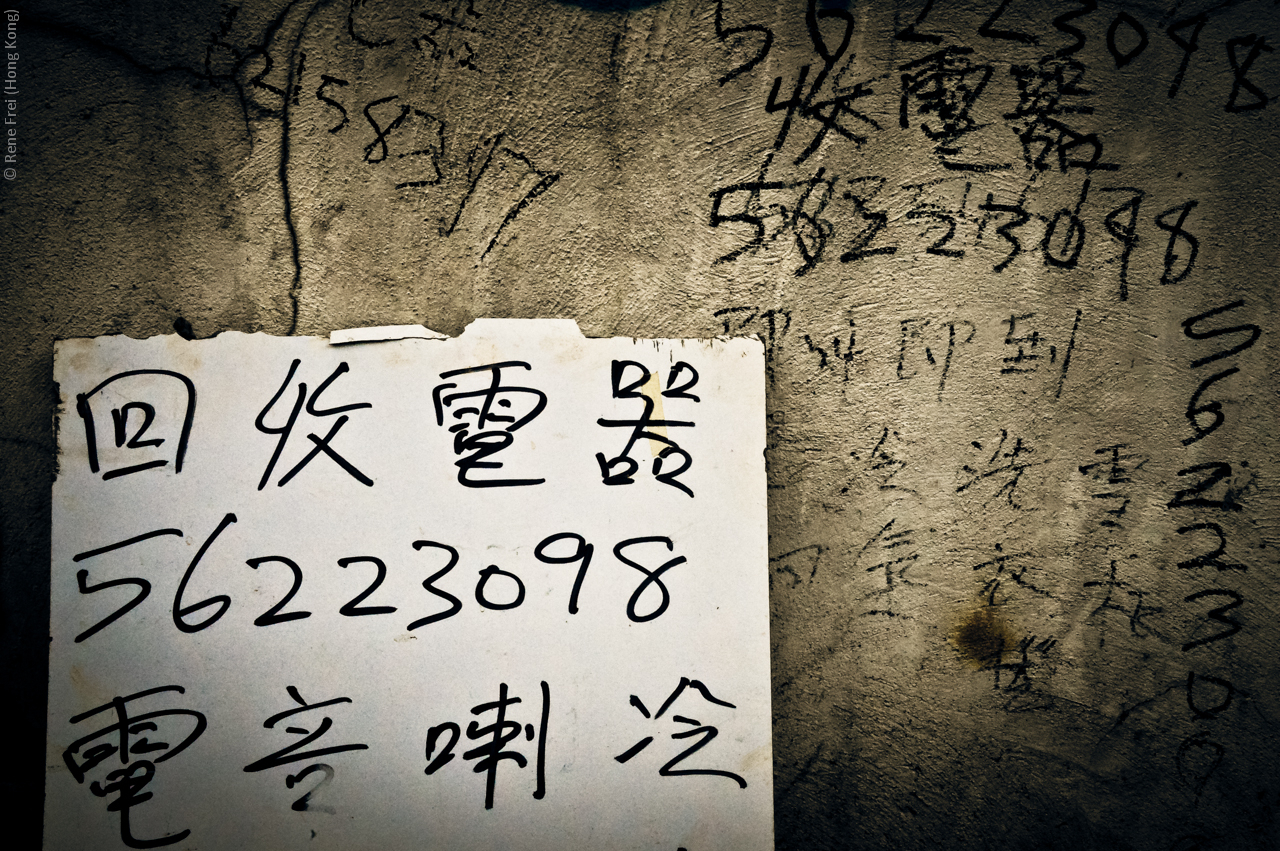 © Rene Frei (Hong Kong)
56223098
收電器
56223098
即叫即到
56223090
冷氣
洗衣機
雪柜
5837
回收電器
56223098
電音喇冷